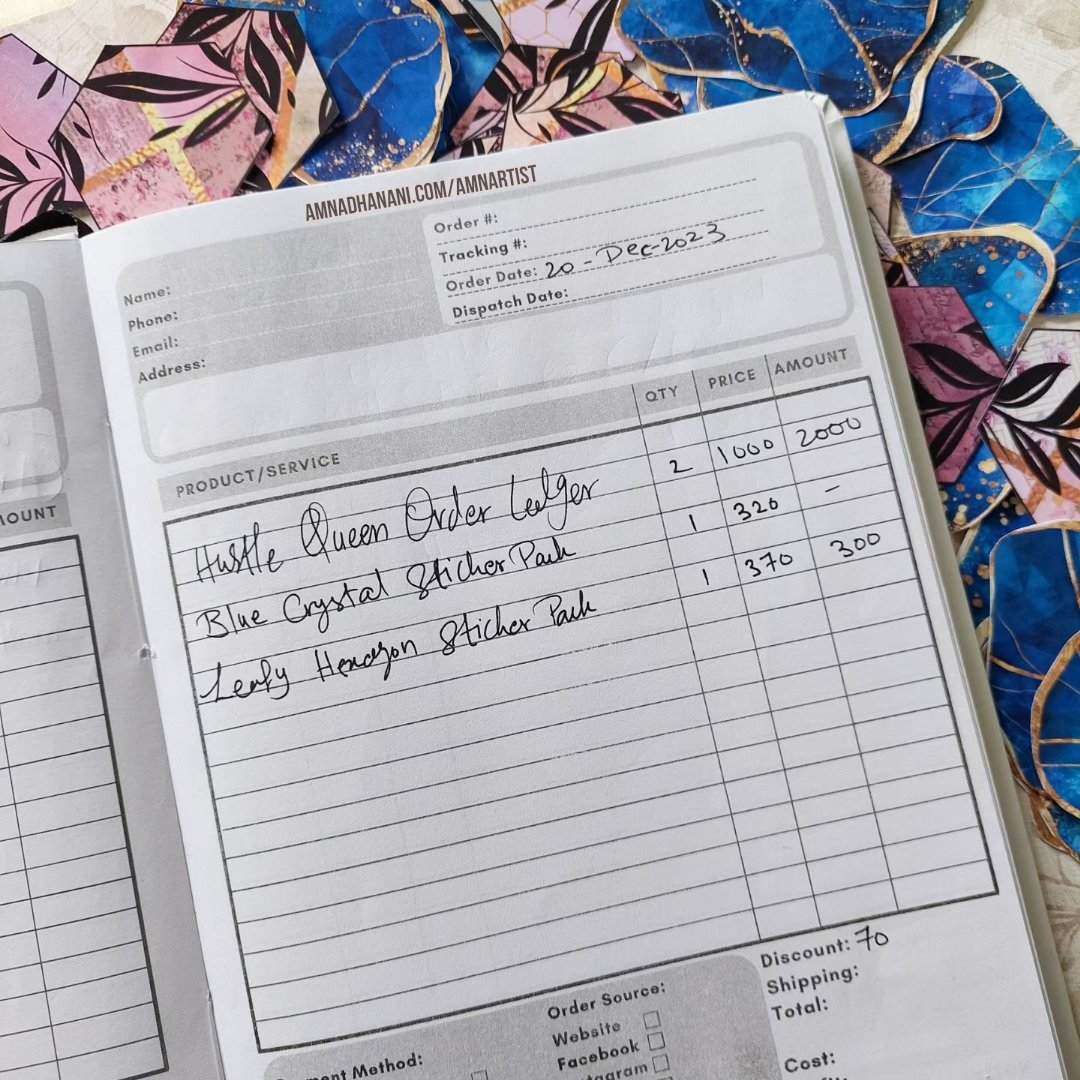 AMNADHANANI.COM/AMNARTIST
Order #:
Tracking #:
Order Date: 20 - Dec-2023
Dispatch Date:
Name:
Phone:
Email:
Address:
PRODUCT/SERVICE QTY PRICE AMOUNT
Hustle Queen Order Ledger 2 1000 2000
Blue Crystal Sticker Pack 1 320 –
Leafy Hexagon Sticker Pack 1 370 300
Discount: 70
Shipping:
Total:
Cost:
Order Source:
Website
Facebook
Method: